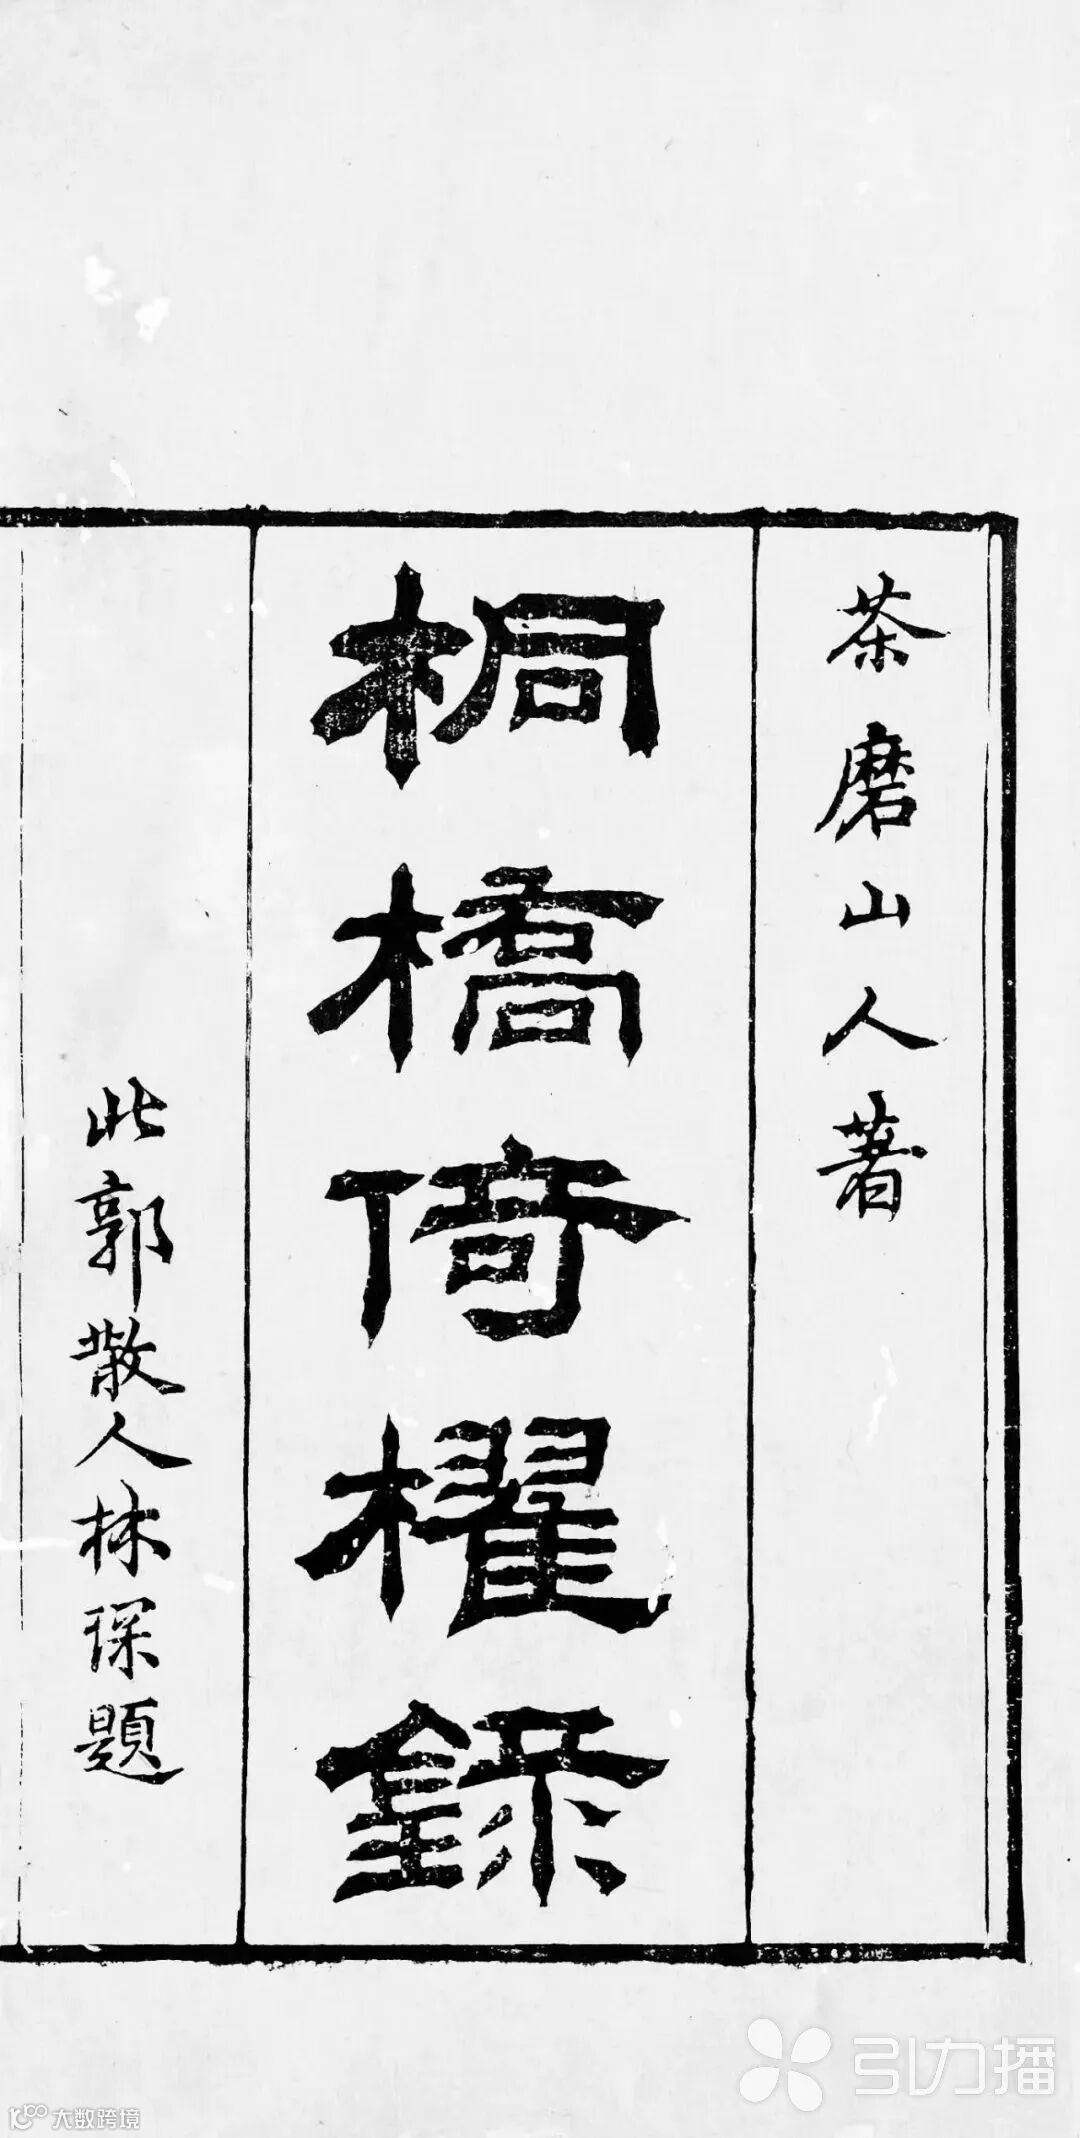 茶磨山人著
桐橋倚櫂録
此郭散人林琛題
引力播
大数跨境